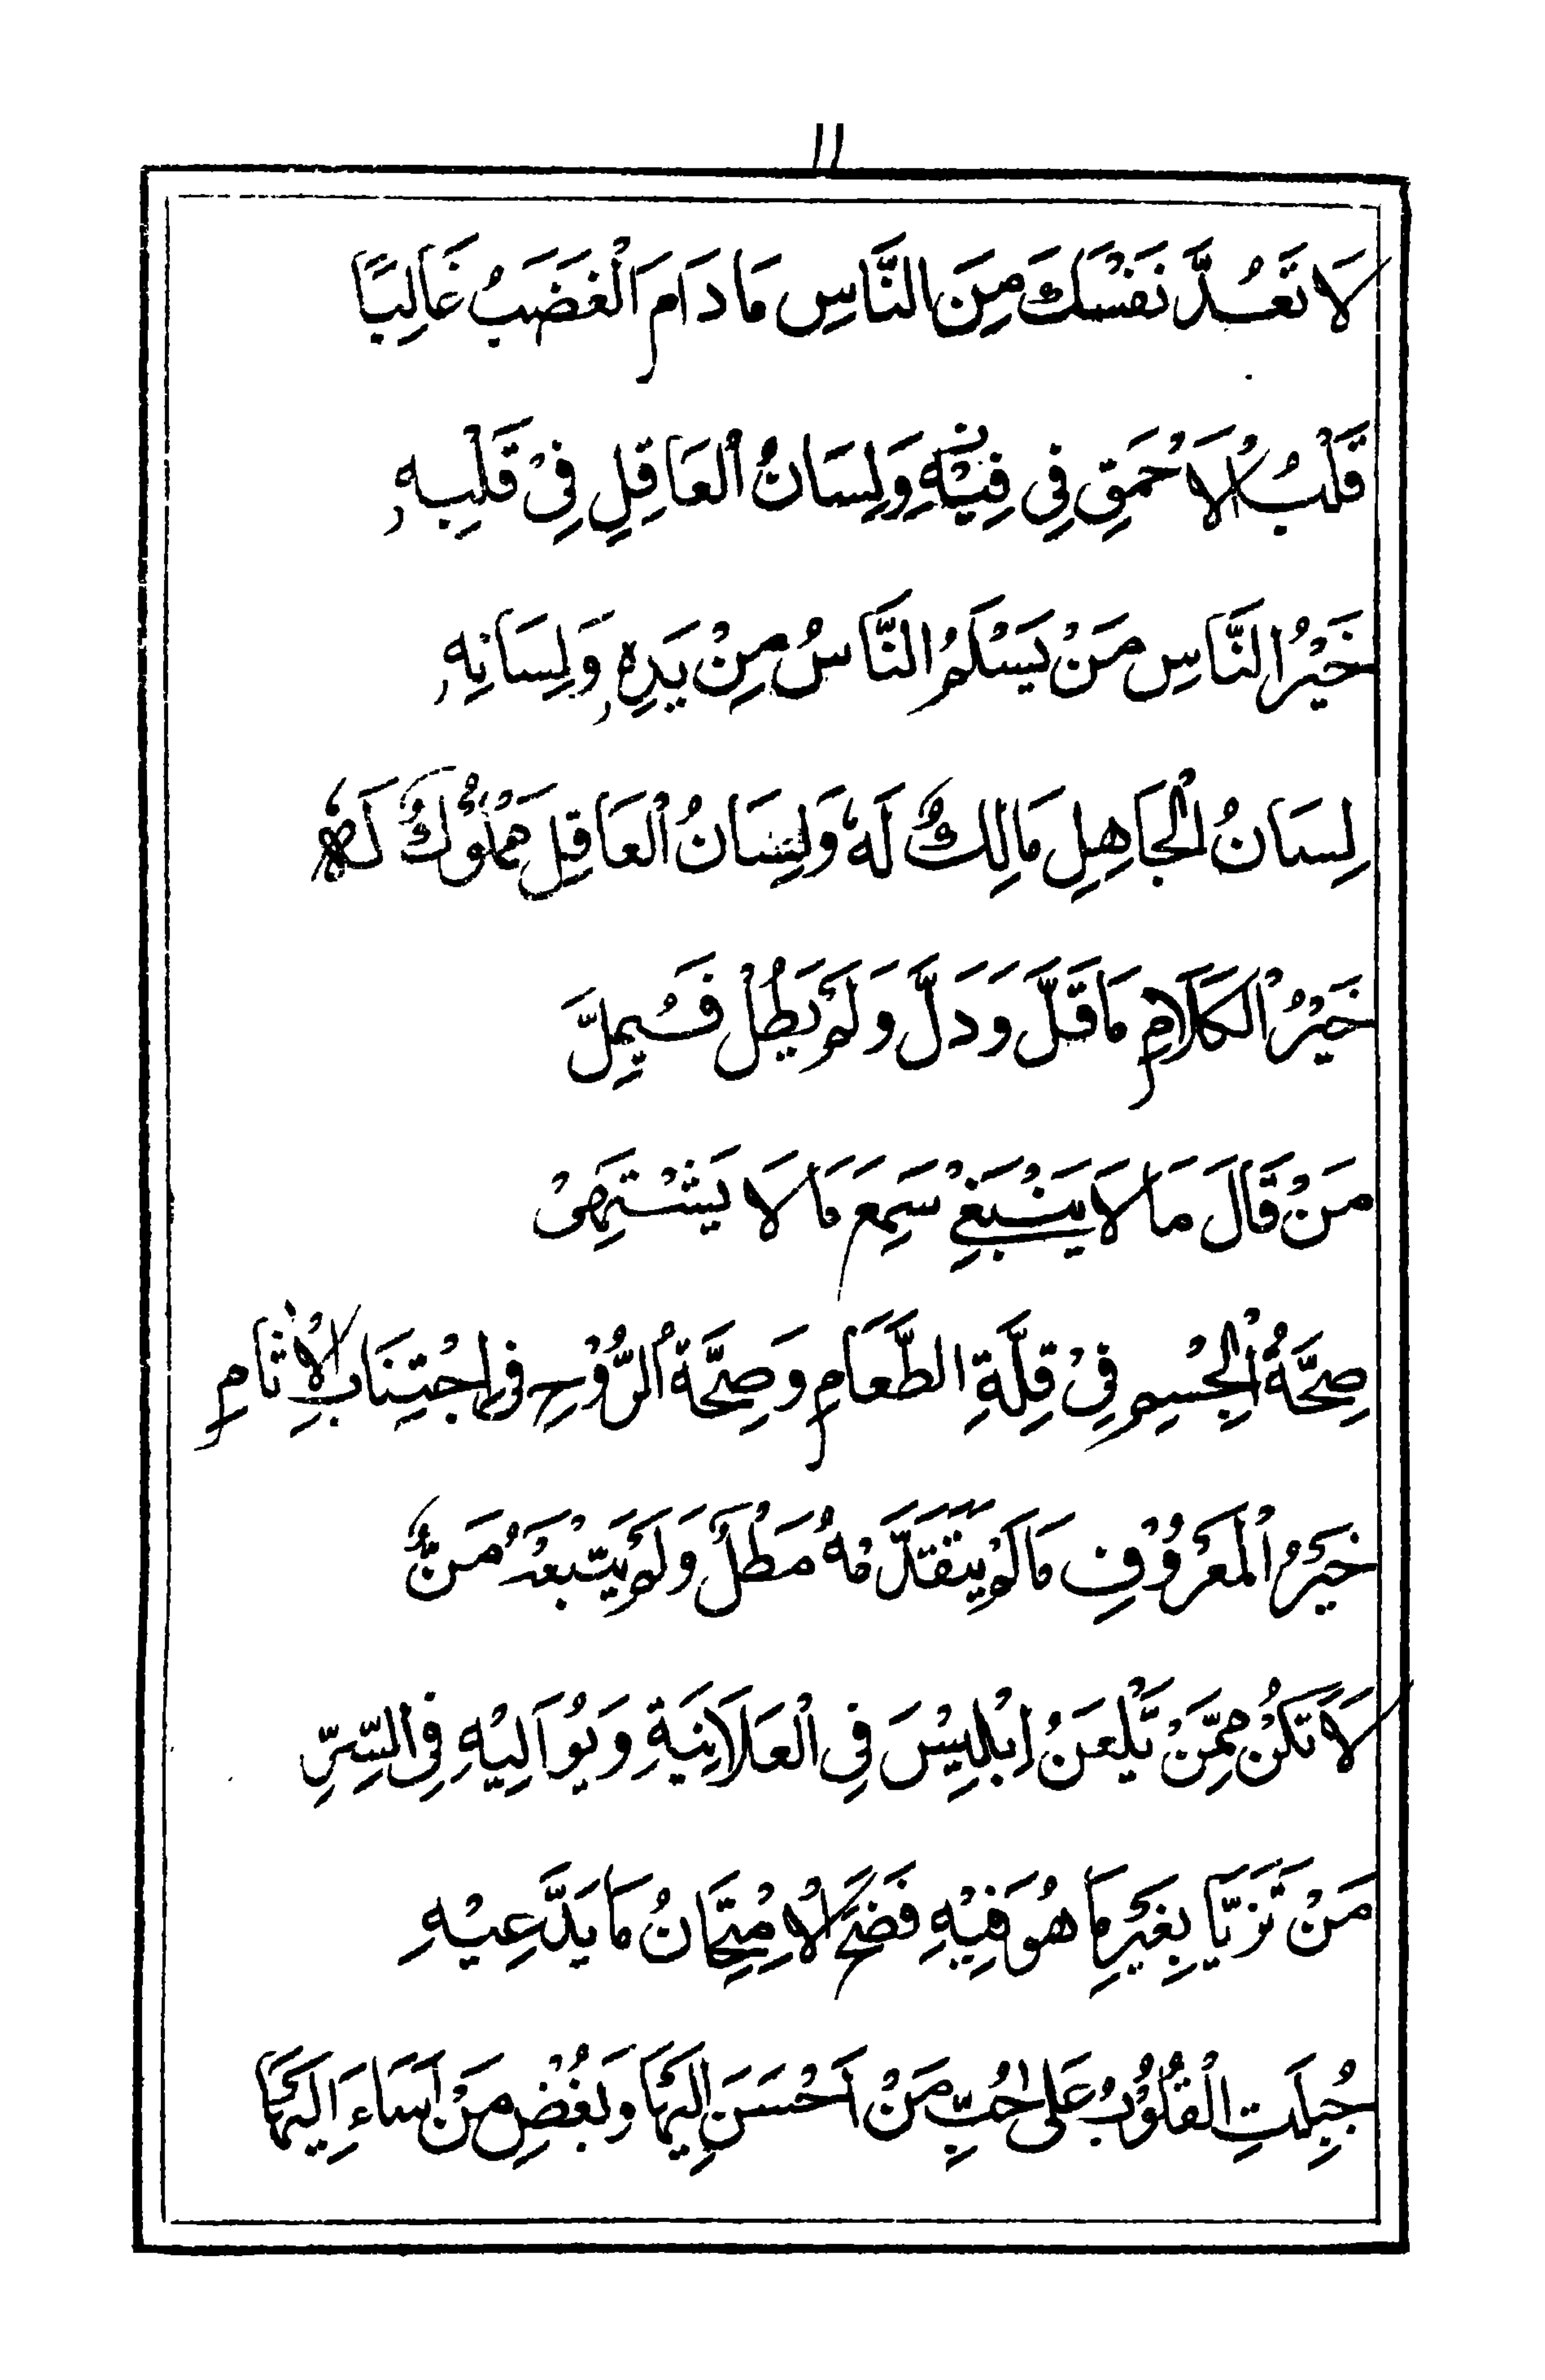 ۱۱
لَا تَعُدَّ نَفْسَكَ مِنَ النَّاسِ مَا دَامَ الْغَضَبُ غَالِبًا
قَلْبُ الْاَحْمَقِ فِي فِيْهِ وَلِسَانُ الْعَاقِلِ فِيْ قَلْبِهٖ
خَيْرُ النَّاسِ مَنْ يَسْلَمُ النَّاسُ مِنْ يَدِهٖ وَلِسَانِهٖ
لِسَانُ الْجَاهِلِ مَالِكٌ لَهٗ وَلِسَانُ الْعَاقِلِ مَمْلُوْكٌ لَهٗ
خَيْرُ الْكَلَامِ مَا قَلَّ وَدَلَّ وَلَمْ يَطُلْ فَيُمِلَّ
مَنْ قَالَ مَا لَا يَنْبَغِيْ سَمِعَ مَا لَا يَشْتَهِيْ
صِحَّةُ الْجِسْمِ فِيْ قِلَّةِ الطَّعَامِ وَصِحَّةُ الرُّوْحِ فِي اجْتِنَابِ الْاٰثَامِ
خَيْرُ الْمَعْرُوْفِ مَا لَمْ يَتَقَدَّمْهُ مَطْلٌ وَلَمْ يَتْبَعْهُ مَنٌّ
لَا تَكُنْ مِمَّنْ يَّلْعَنُ اِبْلِيْسَ فِي الْعَلَانِيَةِ وَيُوَالِيْهِ فِي السِّرِّ
مَنْ تَزَيَّا بِغَيْرِ مَا هُوَ فِيْهِ فَضَحَ الْاِمْتِحَانُ مَا يَدَّعِيْهِ
جُبِلَتِ الْقُلُوْبُ عَلٰى حُبِّ مَنْ اَحْسَنَ اِلَيْهَا وَبُغْضِ مَنْ اَسَاءَ اِلَيْهَا